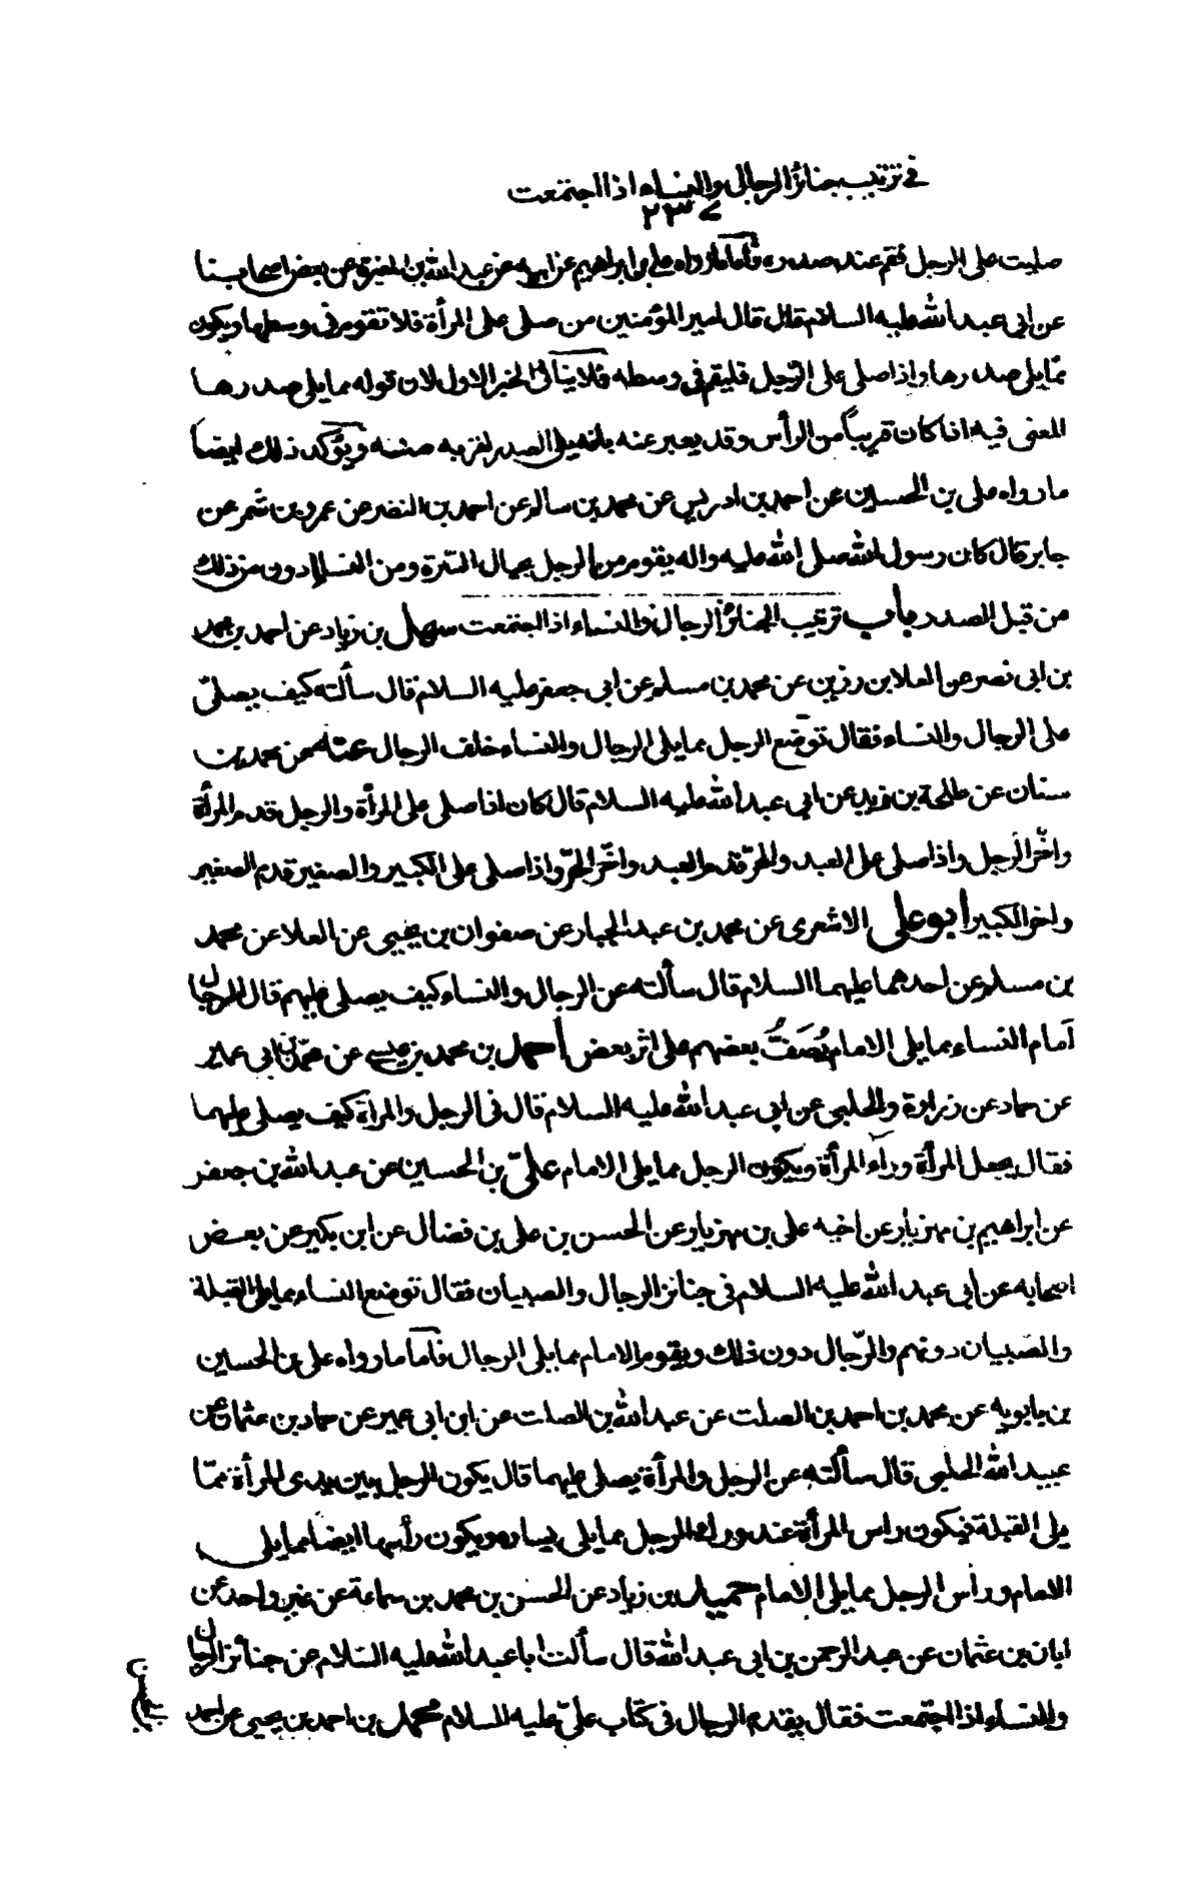 في ترتيب جنائز الرجال والنساء اذا اجتمعت
٢٣٧
صليت على الرجل فقم عند صدره فأما ما رواه علي بن ابراهيم عن ابيه عن عبد الله بن المغيرة عن بعض اصحابنا
عن ابي عبد الله عليه السلام قال قال امير المؤمنين من صلى على المرأة فلا تقوم في وسطها ويكون
مما يلي صدرها واذا صلى على الرجل فليقم في وسطه فلا ينافي الخبر الاول لان قوله مما يلي صدرها
المعنى فيه اذا كان قريباً من الرأس وقد يعبر عنه بانه يلي الصدر لقربه منه ويؤكد ذلك ايضا
ما رواه علي بن الحسين عن احمد بن ادريس عن محمد بن سالم عن احمد بن النضر عن عمرو بن شمر عن
جابر قال كان رسول الله صلى الله عليه واله يقوم من الرجل بحيال السرة ومن النساء دون من ذلك
من قبل الصدر باب ترتيب الجنائز الرجال والنساء اذا اجتمعت سهل بن زياد عن احمد بن محمد
بن ابي نصر عن العلا بن رزين عن محمد بن مسلم عن ابي جعفر عليه السلام قال سألته كيف يصلّى
على الرجال والنساء فقال توضع الرجل مما يلي الرجال والنساء خلف الرجال عنه عن محمد بن
سنان عن طلحة بن زيد عن ابي عبد الله عليه السلام قال كان اذا صلى على المرأة والرجل قدم المرأة
واخّر الرجل واذا صلى على العبد والحرّ قدم العبد واخّر الحرّ واذا صلى على الكبير والصغير قدم الصغير
واخر الكبير ابو علي الاشعري عن محمد بن عبد الجبار عن صفوان بن يحيى عن العلا عن محمد
بن مسلم عن احدهما عليهما السلام قال سألته عن الرجال والنساء كيف يصلى عليهم قال الرجال
أمام النساء مما يلي الامام يُصَفُّ بعضهم على اثر بعض أحمد بن محمد بن عيسى عن محمد بن ابي عمير
عن حماد عن زرارة والحلبي عن ابي عبد الله عليه السلام قال في الرجل والمرأة كيف يصلى عليهما
فقال يجعل المرأة وراء المرأة ويكون الرجل مما يلي الامام عليّ بن الحسين عن عبد الله بن جعفر
عن ابراهيم بن مهزيار عن اخيه علي بن مهزيار عن الحسن بن علي بن فضال عن ابن بكير عن بعض
اصحابه عن أبي عبد الله عليه السلام في جنائز الرجال والصبيان فقال توضع النساء مما يلي القبلة
والصبيان دونهم والرّجال دون ذلك ويقوم الامام مما يلي الرجال فأما ما رواه علي بن الحسين
بن بابويه عن محمد بن احمد بن الصلت عن عبد الله بن الصلت عن ابن ابي عمير عن حماد بن عثمان عن
عبيد الله الحلبي قال سألته عن الرجل والمرأة يصلى عليهما قال يكون الرجل بين يدي المرأة ممّا
يلي القبلة فيكون راس المرأة عند وركي الرجل مما يلي يساره ويكون رأسها ايضا مما يلي
الامام ورأس الرجل مما يلي الامام حميد بن زياد عن الحسن بن محمد بن سماعة عن غير واحد عن
ابان بن عثمان عن عبد الرحمن بن ابي عبد الله قال سألت ابا عبد الله عليه السّلام عن جنائز الرجال
والنساء اذا اجتمعت فقال يقدم الرجال في كتاب عليّ عليه السلام محمد بن احمد بن يحيى عن احمد